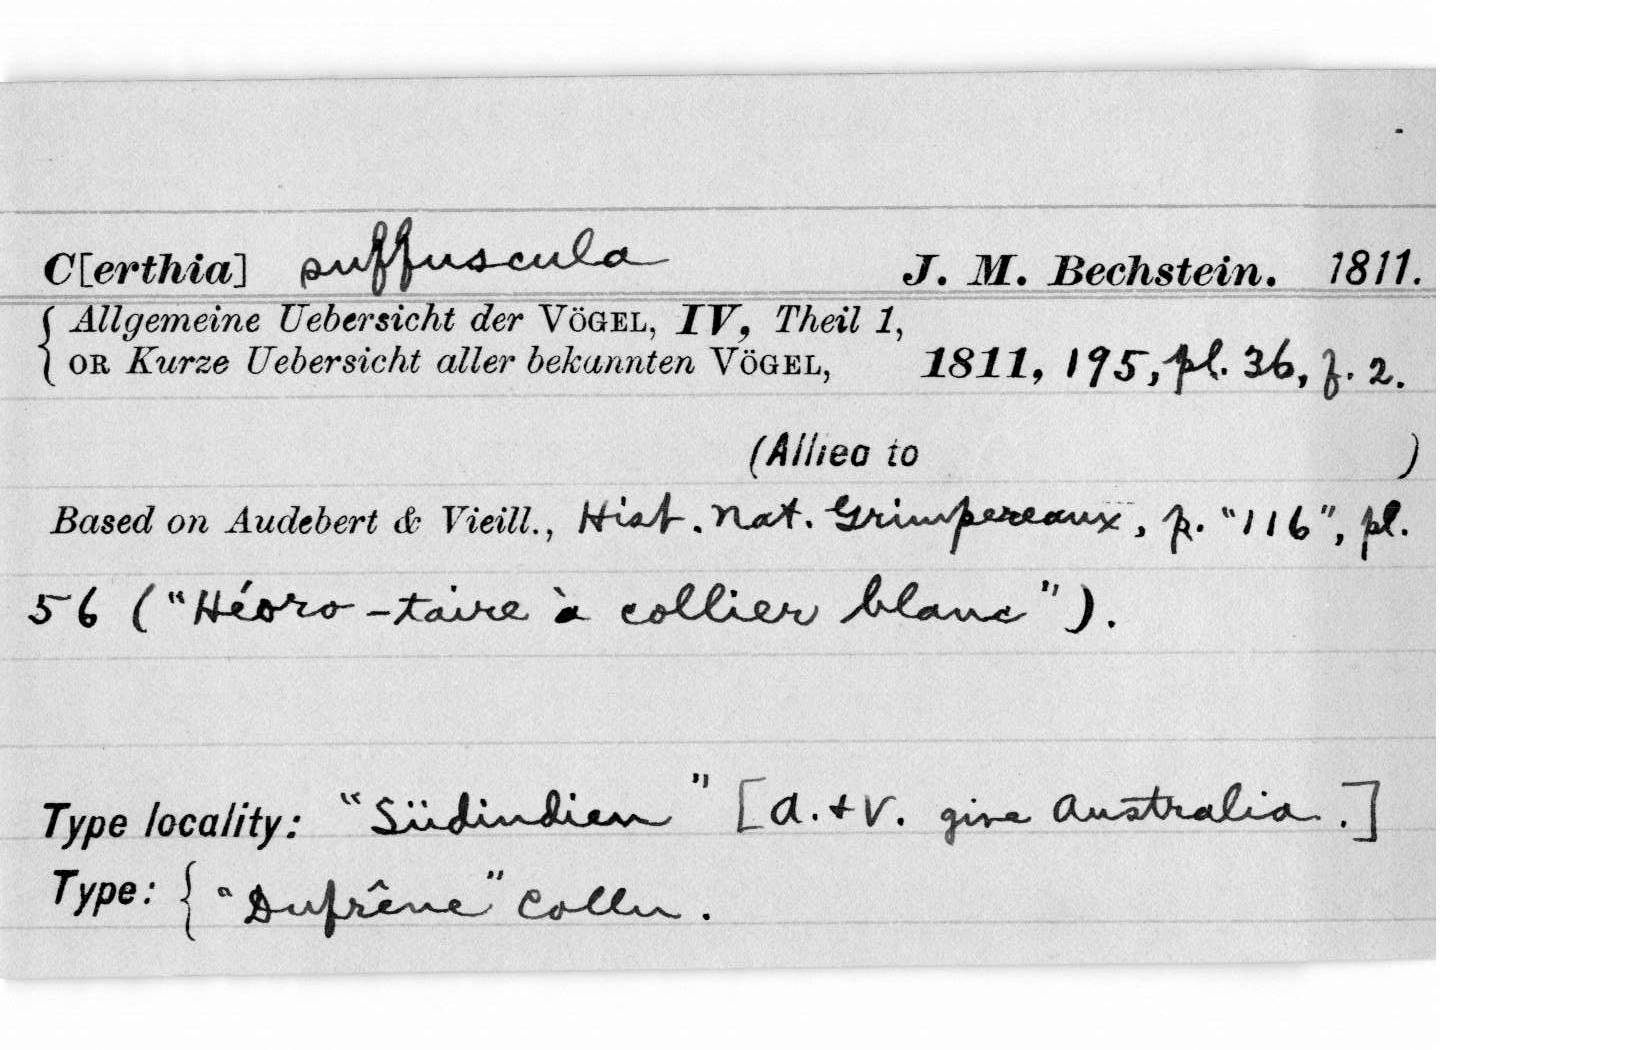 C[erthia] suffuscula J. M. Bechstein. 1811.
{ Allgemeine Uebersicht der VÖGEL, IV, Theil 1,
OR Kurze Uebersicht aller bekannten VÖGEL, 1811, 195, pl. 36, f. 2.
(Allied to )
Based on Audebert & Vieill., Hist. Nat. Grimpereaux, p. "116", pl.
56 ("Héoro-taire à collier blanc").
Type locality: "Südindien" [A. + V. give Australia.]
Type: { "Dufrêne" Colln.